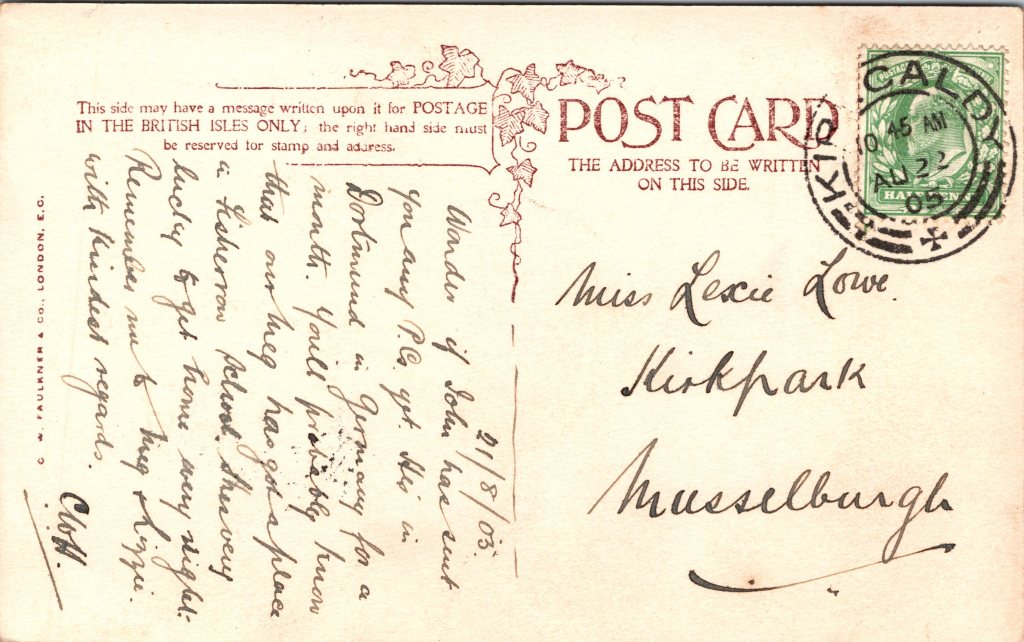 This side may have a message written upon it for POSTAGE
IN THE BRITISH ISLES ONLY; the right hand side must
be reserved for stamp and address.
POST CARD
THE ADDRESS TO BE WRITTEN
ON THIS SIDE.
KIRKCALDY
10 45 AM
AU 22
05
21/8/05.
Wonder if John has sent
you any P.Cs. yet. He's in
Dortmund in Germany for a
month. You'll probably know
that our Meg has got a place
in Fisherrow School. She's very
lucky to get home every night.
Remember me to Meg & Lizzie.
with kindest regards.
Miss Lexie Lowe.
Kirkpark
Musselburgh
C. W. FAULKNER & CO., LONDON. E.C.